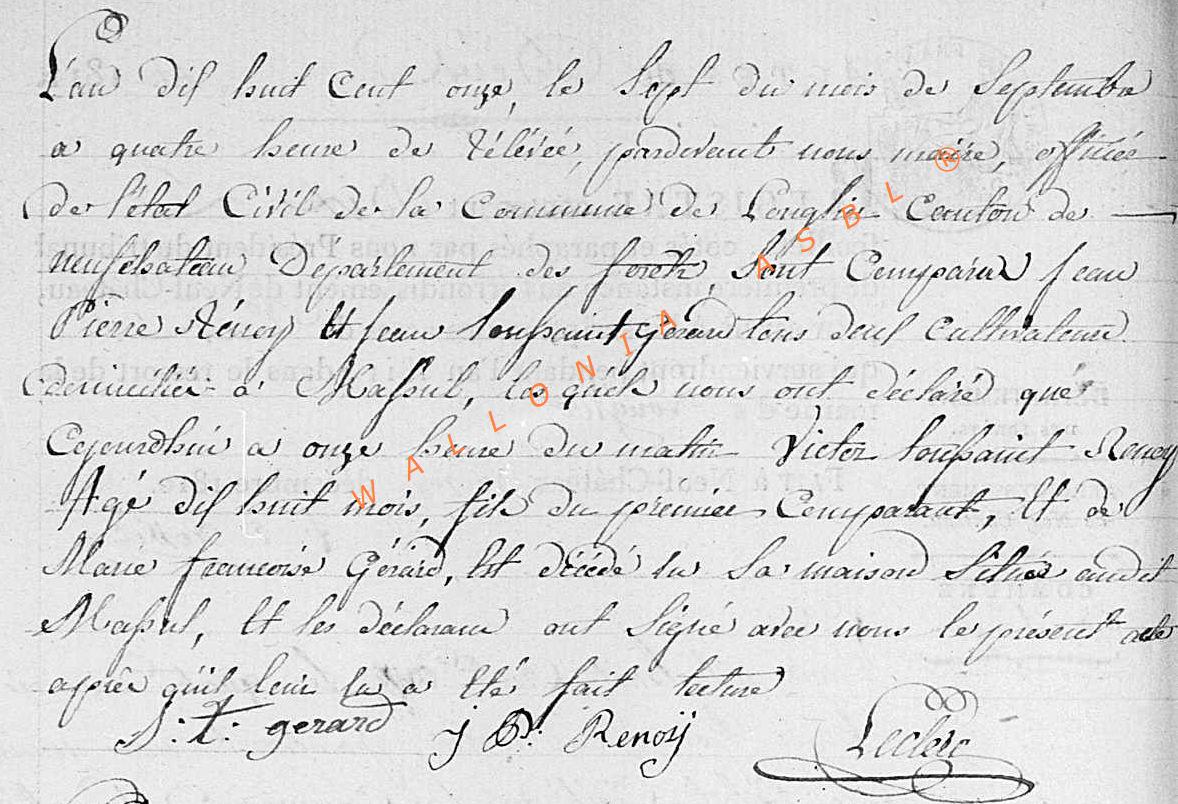 L'an dix huit Cent onze, le Sept du mois de Septembre
a quatre heure de rélévée, pardevant nous maire, officié
de l'état Civil de la Commune de Longlier Canton de
neufchateau Departement des forêts, Sont Comparus jean
Pierre Rénoy Et jean toussaint Gérard tous deux Cultivateur
domicilié à Massul, les quels nous ont déclaré que
Cejourdhui a onze heure du matin Victor toussaint Renoy
Agé dix huit mois, fils du premier Comparant, Et de
Marie francoise Gérard, Est décédé en Sa maison Située audit
Massul, Et les déclarans ont Signé avec nous le présent acte
après qu'il leur en a Eté fait lecture
J: T: gerard J P: Renoÿ Leclerc
WALLONIA ASBL ®